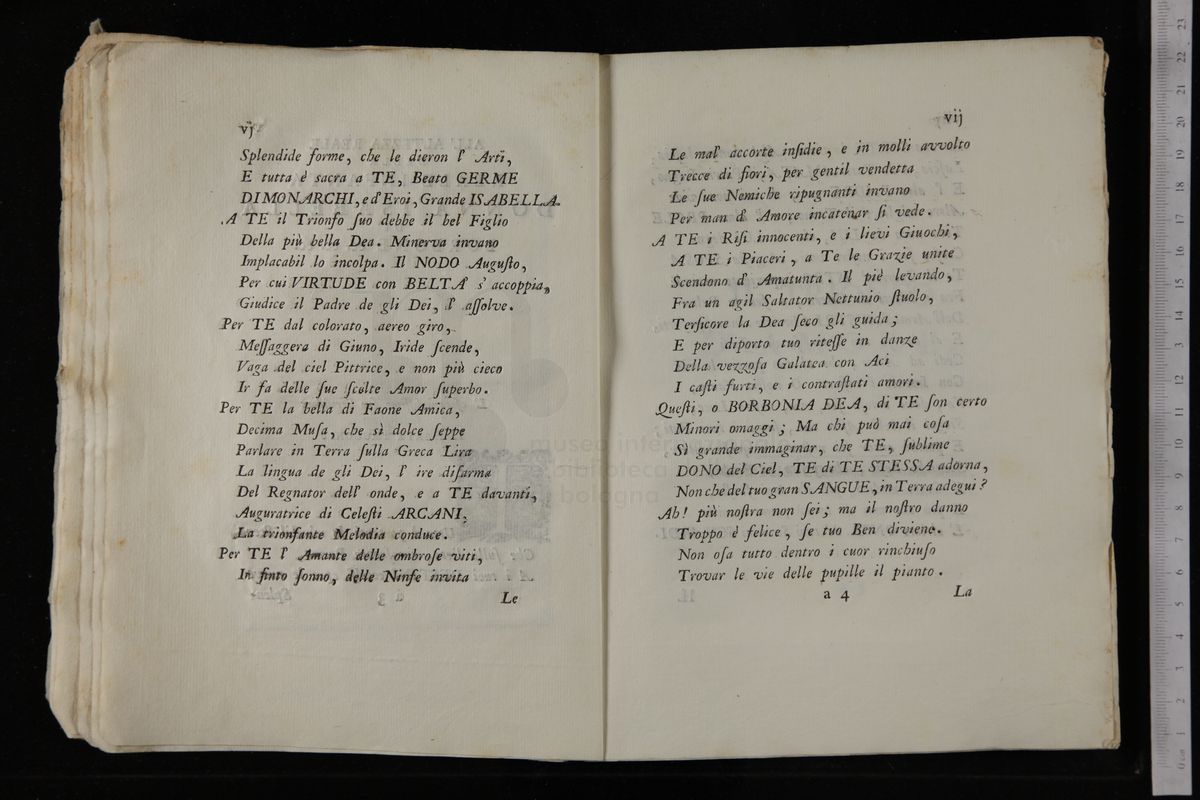 vj
Splendide forme, che le dieron l' Arti,
E tutta è sacra a TE, Beato GERME
DI MONARCHI, e d' Eroi, Grande ISABELLA.
A TE il Trionfo ſuo debbe il bel Figlio
Della più bella Dea. Minerva invano
Implacabil lo incolpa. Il NODO Auguſto,
Per cui VIRTUDE con BELTA' s' accoppia,
Giudice il Padre de gli Dei, l' aſſolve.
Per TE dal colorato, aereo giro,
Meſſaggera di Giuno, Iride ſcende,
Vaga del ciel Pittrice, e non più cieco
Ir fa delle ſue ſcelte Amor ſuperbo.
Per TE la bella di Faone Amica,
Decima Muſa, che sì dolce ſeppe
Parlare in Terra ſulla Greca Lira
La lingua de gli Dei, l' ire diſarma
Del Regnator dell' onde, e a TE davanti,
Auguratrice di Celeſti ARCANI,
La trionfante Melodia conduce.
Per TE l' Amante delle ombroſe viti,
In finto ſonno, delle Ninfe invita
a 3
Le
vij
Le mal' accorte inſidie, e in molli avvolto
Trecce di fiori, per gentil vendetta
Le ſue Nemiche ripugnanti invano
Per man d' Amore incatenar ſi vede.
A TE i Riſi innocenti, e i lievi Giuochi,
A TE i Piaceri, a Te le Grazie unite
Scendono d' Amatunta. Il piè levando,
Fra un agil Saltator Nettunio ſtuolo,
Terſicore la Dea ſeco gli guida;
E per diporto tuo riteſſe in danze
Della vezzoſa Galatea con Aci
I caſti furti, e i contraſtati amori.
Queſti, o BORBONIA DEA, di TE ſon certo
Minori omaggi; Ma chi può mai coſa
Sì grande immaginar, che TE, ſublime
DONO del Ciel, TE di TE STESSA adorna,
Non che del tuo gran SANGUE, in Terra adegui?
Ah! più noſtra non ſei; ma il noſtro danno
Troppo è felice, ſe tuo Ben diviene.
Non oſa tutto dentro i cuor rinchiuſo
Trovar le vie delle pupille il pianto.
a 4
La
museo internazionale
e biblioteca
bologna